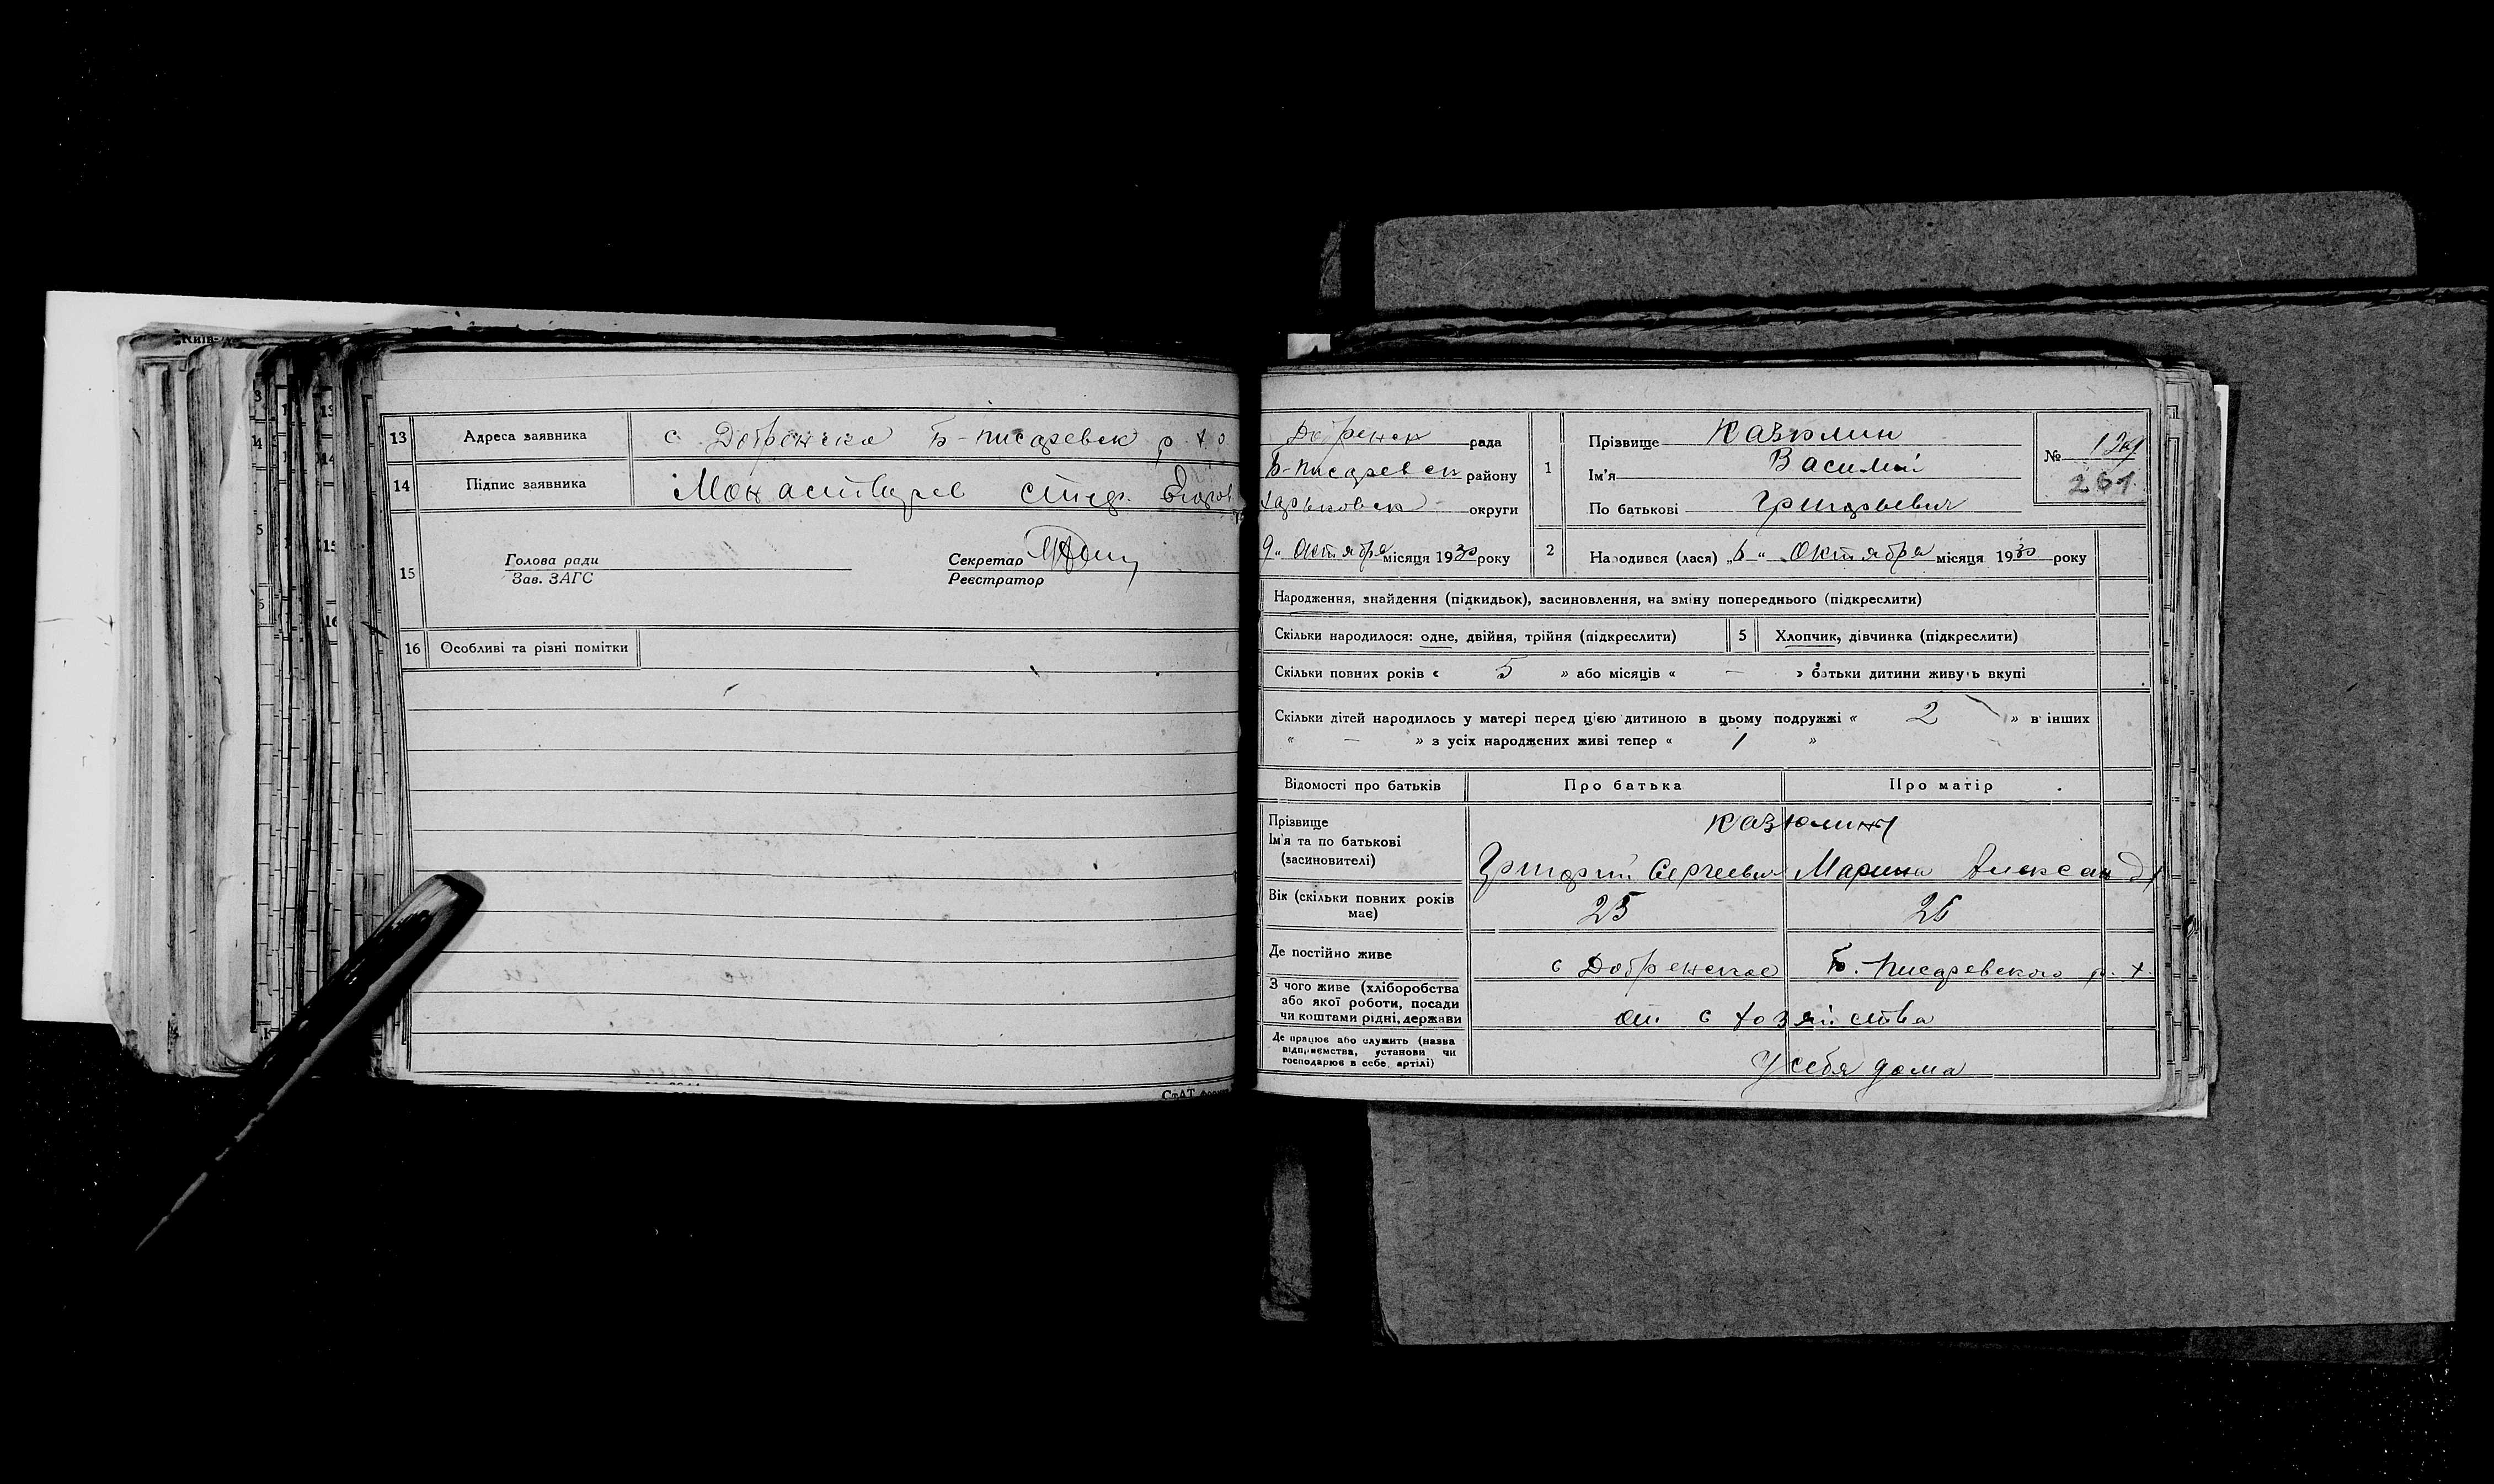 13 Адреса заявника с. Б-писаревск р. х. о
14 Підпис заявника
15
Голова ради
Зав. ЗАГС
Секретар
Реєстратор
16 Особливі та різні помітки
рада
Б-писаревск району
Харьковск округи
9 „ Октября місяця 1930 року
1
Прізвище Казюлин
Ім'я Василий
По батькові Григорьевич
№
261
2 Народився (лася) „6 “ Октября місяця 1930 року
Народження, знайдення (підкидьок), засиновлення, на зміну попереднього (підкреслити)
Скільки народилося: одне, двійня, трійня (підкреслити) 5 Хлопчик, дівчинка (підкреслити)
Скільки повних років « 5 » або місяців « — » батьки дитини живуть вкупі
Скільки дітей народилось у матері перед цією дитиною в цьому подружжі « 2 » в інших
« — » з усіх народжених живі тепер « 1 »
Відомості про батьків Про батька Про матір
Прізвище
Ім'я та по батькові
(засновителі)
Казюлины
Григорий Сергеевич Марина Александ
Вік (скільки повних років має) 25 26
Де постійно живе с Добренское Б. Писаревского р. х.
З чого живе (хліборобства або якої роботи, посади чи коштами рідні, держави от с хозяйства
Де працює або служить (назва підприємства, установи чи господарює в себе, артілі) У себя дома